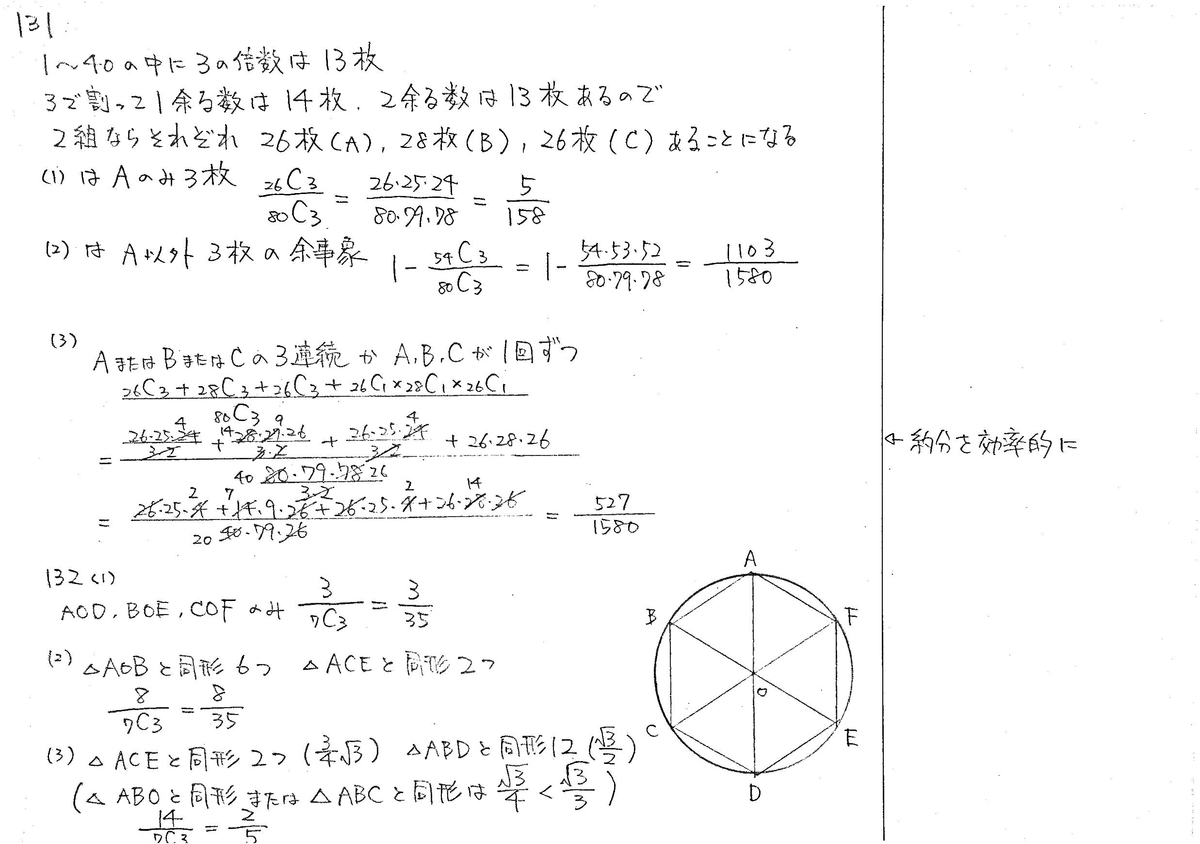 131
1～40の中に3の倍数は13枚
3で割って1余る数は14枚．2余る数は13枚あるので
2組ならそれぞれ 26枚(A), 28枚(B), 26枚(C)あることになる
(1) はAのみ3枚 26C3/80C3 = 26・25・24/80・79・78 = 5/158
(2) は A以外3枚の余事象 1 - 54C3/80C3 = 1 - 54・53・52/80・79・78 = 1103/1580
(3)
AまたはBまたはCの3連続か A,B,Cが1回ずつ
26C3 + 28C3 + 26C3 + 26C1 × 28C1 × 26C1
80C3
4 14 9 4
26・25・24/3・2 + 28・27・26/3・2 + 26・25・24/3・2 + 26・28・26
= ←約分を効率的に
40 80・79・78 26
3・2
2 7 2 14
= 26・25・4 + 14・9・26 + 26・25・4 + 26・28・26 = 527/1580
20 40・79・26
132 (1)
AOD, BOE, COF のみ 3/7C3 = 3/35
(2) △AOBと同形6つ △ACEと同形2つ
8/7C3 = 8/35
(3) △ACEと同形2つ (3/4√3) △ABDと同形12 (√3/2)
(△ABOと同形または△ABCと同形は √3/4 < √3/3)
14/7C3 = 2/5
A
B F
O
C E
D